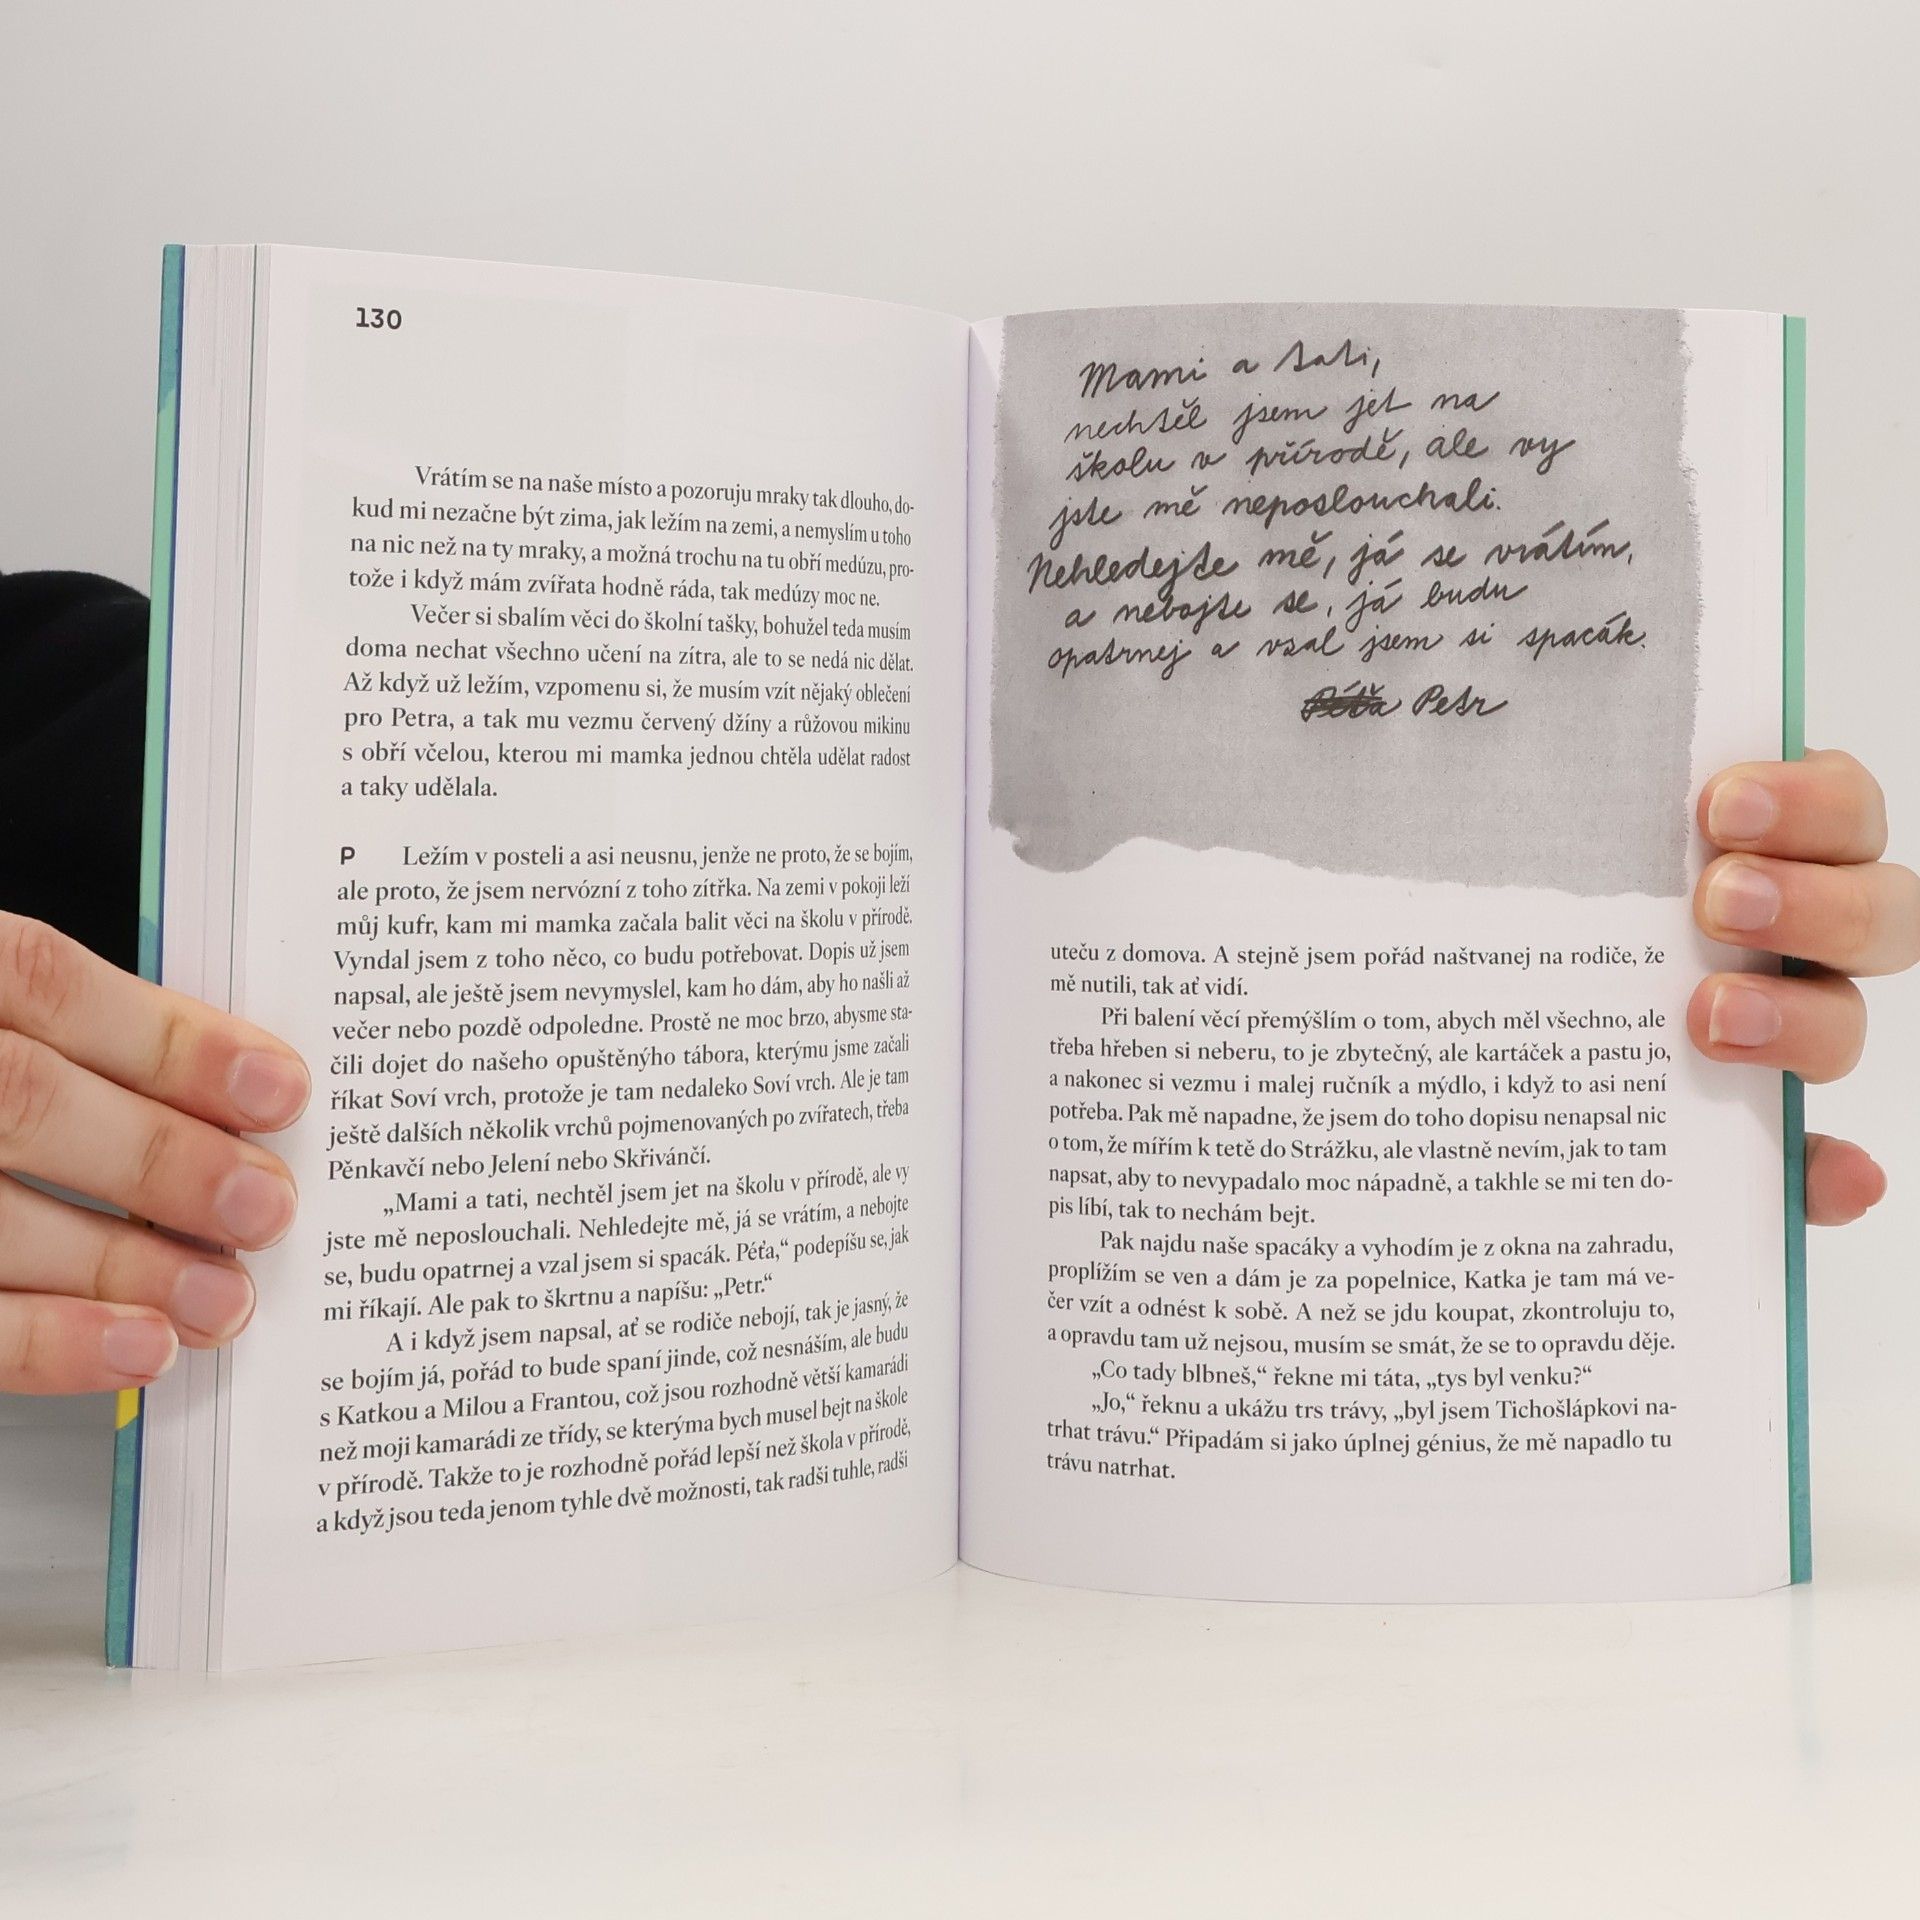 130
Vrátím se na naše místo a pozoruju mraky tak dlouho, do-
kud mi nezačne být zima, jak ležím na zemi, a nemyslím u toho
na nic než na ty mraky, a možná trochu na tu obří medúzu, pro-
tože i když mám zvířata hodně ráda, tak medúzy moc ne.
Večer si sbalím věci do školní tašky, bohužel teda musím
doma nechat všechno učení na zítra, ale to se nedá nic dělat.
Až když už ležím, vzpomenu si, že musím vzít nějaký oblečení
pro Petra, a tak mu vezmu červený džíny a růžovou mikinu
s obří včelou, kterou mi mamka jednou chtěla udělat radost
a taky udělala.
P Ležím v posteli a asi neusnu, jenže ne proto, že se bojím,
ale proto, že jsem nervózní z toho zítřka. Na zemi v pokoji leží
můj kufr, kam mi mamka začala balit věci na školu v přírodě.
Vyndal jsem z toho něco, co budu potřebovat. Dopis už jsem
napsal, ale ještě jsem nevymyslel, kam ho dám, aby ho našli až
večer nebo pozdě odpoledne. Prostě ne moc brzo, abysme sta-
čili dojet do našeho opuštěnýho tábora, kterýmu jsme začali
říkat Soví vrch, protože je tam nedaleko Soví vrch. Ale je tam
ještě dalších několik vrchů pojmenovaných po zvířatech, třeba
Pěnkavčí nebo Jelení nebo Skřivánčí.
„Mami a tati, nechtěl jsem jet na školu v přírodě, ale vy
jste mě neposlouchali. Nehledejte mě, já se vrátím, a nebojte
se, budu opatrnej a vzal jsem si spacák. Péťa,“ podepíšu se, jak
mi říkají. Ale pak to škrtnu a napíšu: „Petr.“
A i když jsem napsal, ať se rodiče nebojí, tak je jasný, že
se bojím já, pořád to bude spaní jinde, což nesnáším, ale budu
s Katkou a Milou a Frantou, což jsou rozhodně větší kamarádi
než moji kamarádi ze třídy, se kterýma bych musel bejt na škole
v přírodě. Takže to je rozhodně pořád lepší než škola v přírodě,
a když jsou teda jenom tyhle dvě možnosti, tak radši tuhle, radši
Mami a tati,
nechtěl jsem jet na
školu v přírodě, ale vy
jste mě neposlouchali.
Nehledejte mě, já se vrátím,
a nebojte se, já budu
opatrnej a vzal jsem si spacák.
Péťa Petr
uteču z domova. A stejně jsem pořád naštvanej na rodiče, že
mě nutili, tak ať vidí.
Při balení věcí přemýšlím o tom, abych měl všechno, ale
třeba hřeben si neberu, to je zbytečný, ale kartáček a pastu jo,
a nakonec si vezmu i malej ručník a mýdlo, i když to asi není
potřeba. Pak mě napadne, že jsem do toho dopisu nenapsal nic
o tom, že mířím k tetě do Strážku, ale vlastně nevím, jak to tam
napsat, aby to nevypadalo moc nápadně, a takhle se mi ten do-
pis líbí, tak to nechám bejt.
Pak najdu naše spacáky a vyhodím je z okna na zahradu,
proplížím se ven a dám je za popelnice, Katka je tam má ve-
čer vzít a odnést k sobě. A než se jdu koupat, zkontroluju to,
a opravdu tam už nejsou, musím se smát, že se to opravdu děje.
„Co tady blbneš,“ řekne mi táta, „tys byl venku?“
„Jo,“ řeknu a ukážu trs trávy, „byl jsem Tichošlápkovi na-
trhat trávu.“ Připadám si jako úplnej génius, že mě napadlo tu
trávu natrhat.